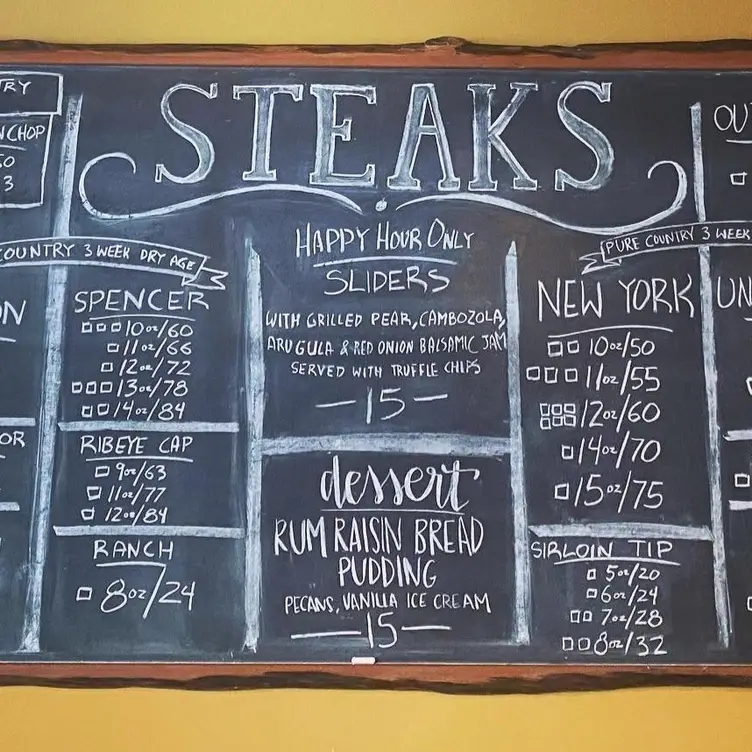 STEAKS
TRY
CHOP
3
COUNTRY 3 WEEK DRY AGE
SPENCER
10oz/60
11oz/66
12oz/72
13oz/78
14oz/84
RIBEYE CAP
9oz/63
11oz/77
12oz/84
RANCH
8oz/24
HAPPY HOUR ONLY
SLIDERS
WITH GRILLED PEAR, CAMBOZOLA,
ARUGULA & RED ONION BALSAMIC JAM
SERVED WITH TRUFFLE CHIPS
—15—
dessert
RUM RAISIN BREAD
PUDDING
PECANS, VANILLA ICE CREAM
—15—
PURE COUNTRY 3 WEEK
NEW YORK
10oz/50
11oz/55
12oz/60
14oz/70
15oz/75
SIRLOIN TIP
5oz/20
6oz/24
7oz/28
8oz/32
OU
UN